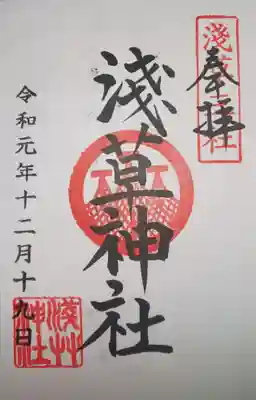 奉拝
淺草神社
令和元年十二月十九日
淺草神社